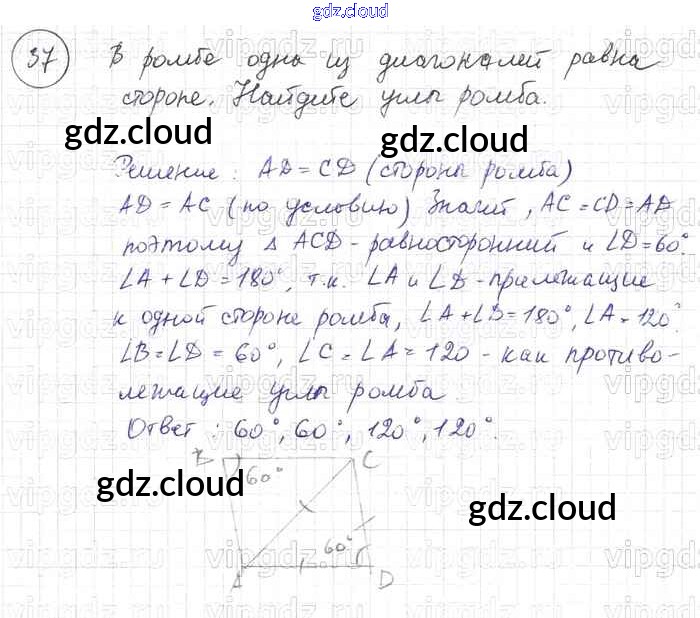 gdz.cloud
37 В ромбе одна из диагоналей равна
стороне. Найдите углы ромба.
gdz.cloud gdz.cloud
Решение: AD = CD (стороны ромба)
AD = AC (по условию) Значит, AC = CD = AD
поэтому Δ ACD - равносторонний и ∠D = 60°.
∠A + ∠D = 180°, т.к. ∠A и ∠D - прилежащие
к одной стороне ромба, ∠A + ∠D = 180°, ∠A = 120°
∠B = ∠D = 60°, ∠C = ∠A = 120 - как противо-
лежащие углы ромба
Ответ: 60°, 60°, 120°, 120°.
C
60°
gdz.cloud gdz.cloud
60°
A D